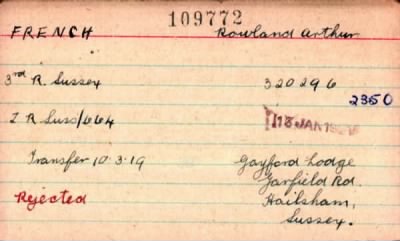 109772
FRENCH Rowland Arthur
3rd R. Sussex 320296
2350
Z R Suss/664 13 JAN 19
Transfer 10.3.19 Gayford Lodge
Garfield Rd.
Rejected Hailsham,
Sussex.